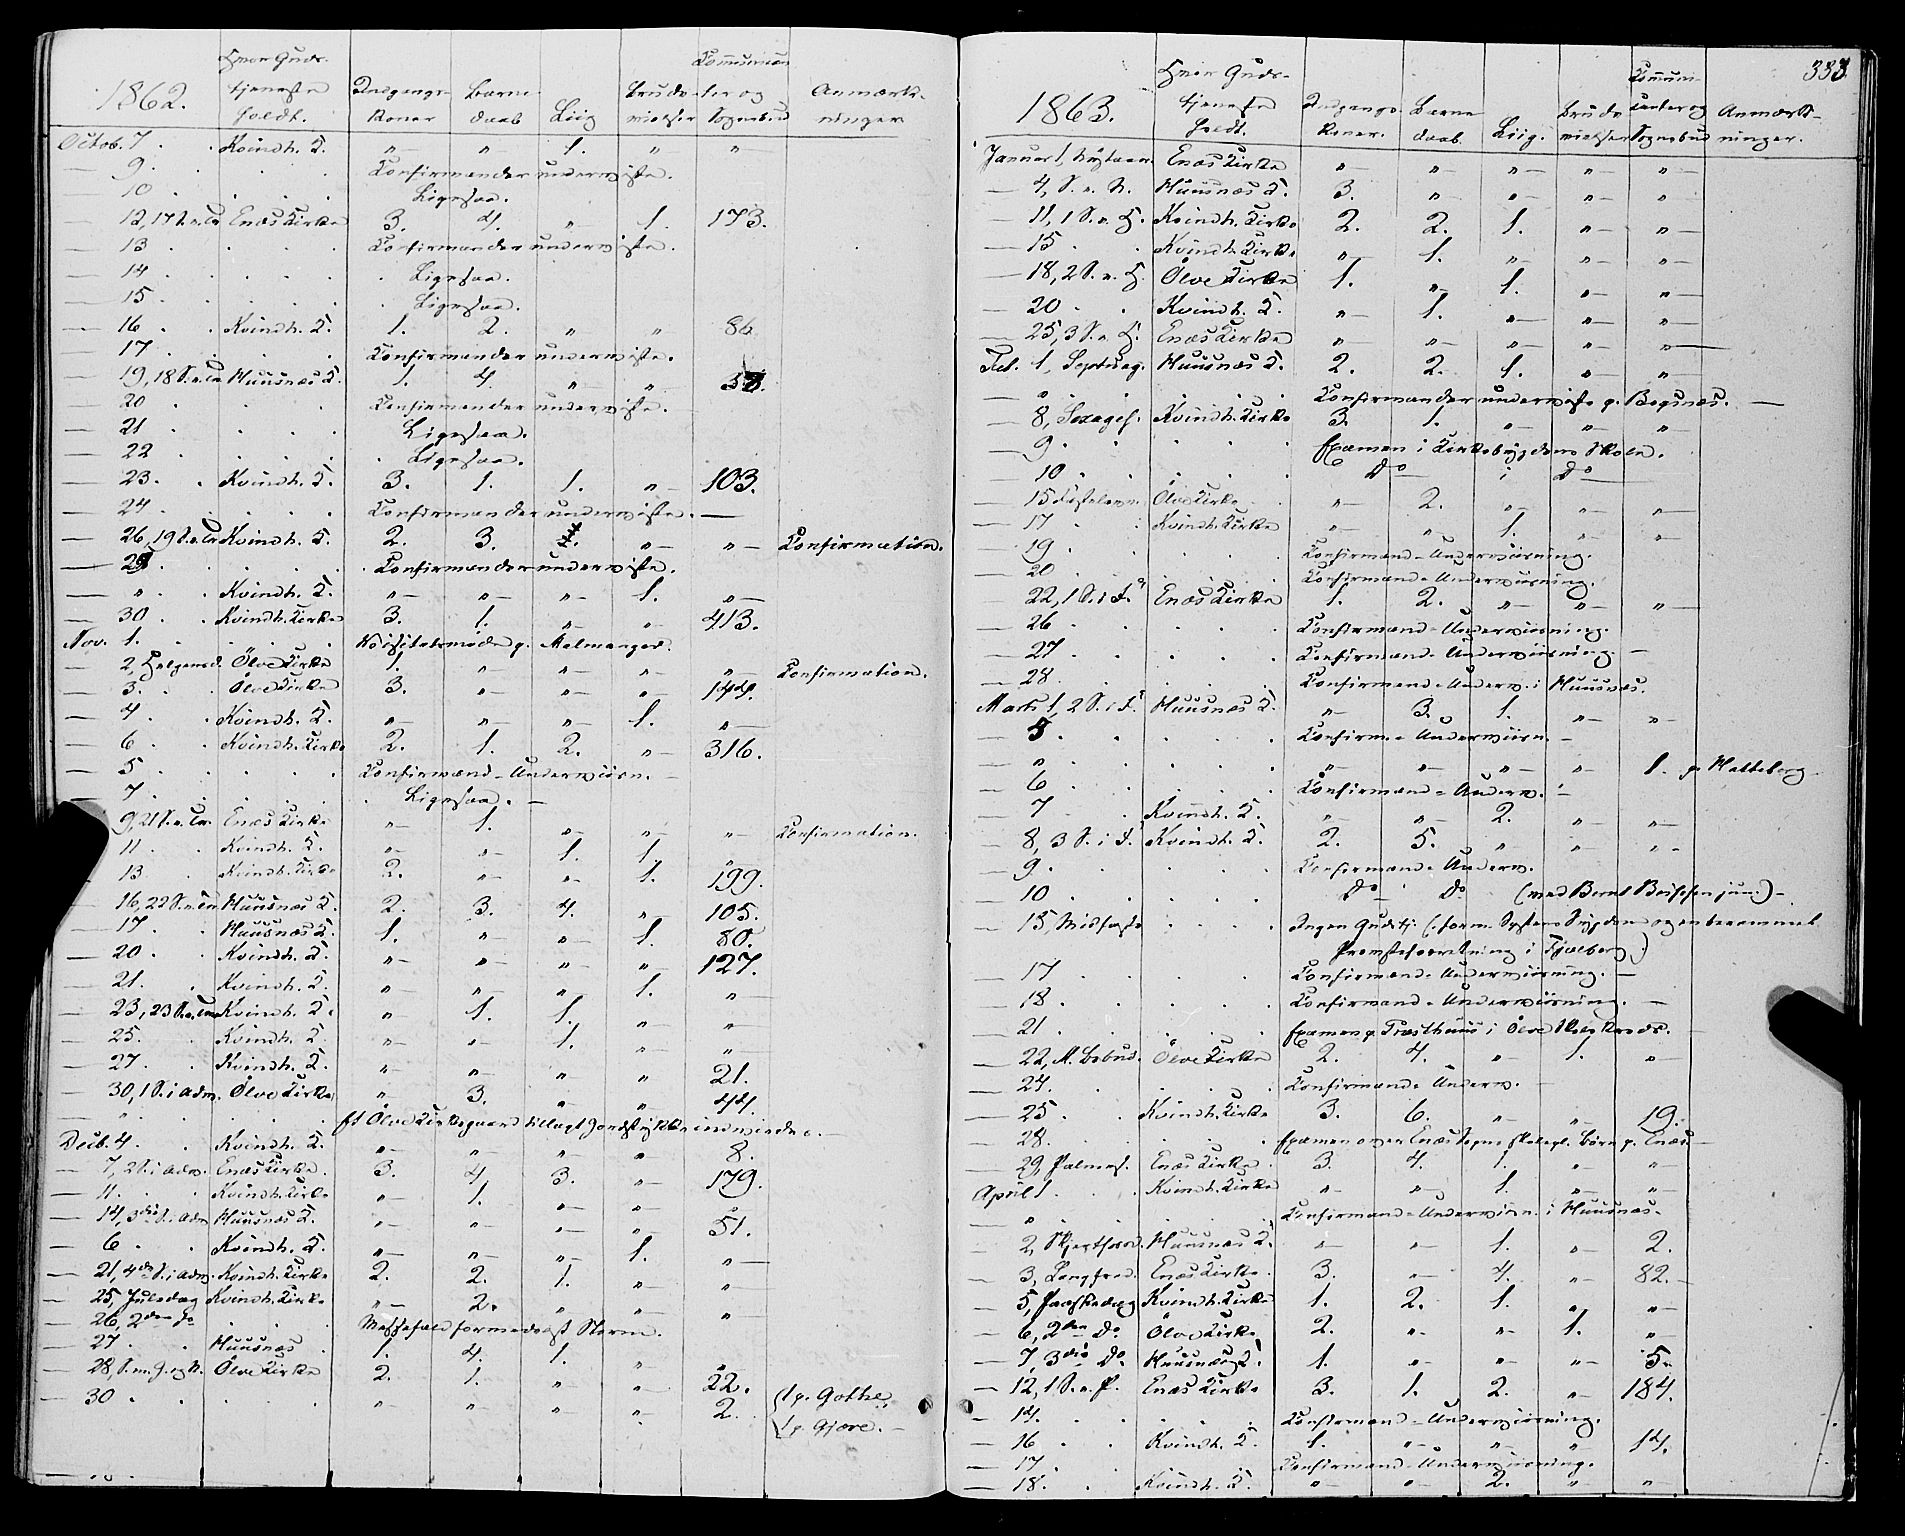 1862. Hvor Guds- tjeneste holdt. Indgangs Koner Barne daab Liig Brude vielser Communican ter og Sognebud Anmærk- ninger
Octob. 7. Kvindh. K. " " 1. " "
— 9. Confirmander underviste.
— 10. Ligesaa.
— 12, 17 S. e. Tr. Enæs Kirke 3. 4. " 1. 173.
— 13. Confirmander underviste.
— 14. Ligesaa.
— 15. Ligesaa.
— 16. Kvindh. K. 1. 2. " " 86
— 17. Confirmander underviste.
— 19, 18 S. e. Tr. Huusnæs K. 1. 4. " "
— 20 Confirmander underviste.
— 21 Ligesaa.
— 22 Ligesaa.
— 23. Kvindh. K. 3. 1. 1. " 103.
— 24. Confirmander underviste. —
— 26, 19 S. e. Tr. Kvindh. K. 2. 3. " " Confirmation.
— Confirmander underviste.
— " Kvindh. K. " " " 1. "
— 30 Kvindh. Kirke 3. 1. " " 413.
Nov. 1. p. Malmanger.
— 2, Helgensd. Ölve Kirke 1. " " " " Confirmation.
— 3. Ölve Kirke 3. " " " 144.
— 4. Kvindh. K. " " " 1. "
— 6. Kvindh. Kirke 2. 1. 2. " 316.
— 5. Confirmand-Underviisn. —
— 7. Ligesaa. —
9, 21 S. e. Tr. Enæs Kirke " 1. " " " Confirmation.
11. Kvindh. K. " " 1. 1.
13. Kvindh. Kirke 2. " " 1. 199.
16, 22 S. e. Tr. Huusnæs K. 2. 3. 4. " 105.
17. Huusnæs K. 1. " " 1. 80.
— 20 Kvindh. K. " " " " 127.
— 21. Kvindh. K. " " " 1. "
— 23, 23 S. e. Tr. Kvindh. K. " 1. 1. " "
— 25. Kvindh. K. " " 1. " "
— 27. Kvindh. K. " " " " 21.
— 30, 1 S. i Adv. Ölve Kirke " 3. " " 44.
" Et Ölve Kirkegaard tillagt Jordstykke indviedes. —
Decb. 4. Kvindh. K. " " " " 8.
— 7, 2 S. i Adv. Enæs Kirke. 3. 4 3. " 179.
— 11. Kvindh. Kirke " 1. " "
— 14, 3die S. i Adv. Huusnæs K. " " " " 51.
— 6 Kvindh. K. " " " 1. "
— 21, 4de S. i Adv. Kvindh. Kirke 2. 2. 1. " "
— 25, Juledag Kvindh. Kirke " 2. " " "
— 26, 2den Do Messefald formedelst Storm.
— 27 Huusnæs 1. 4. 1. "
— 28, S. m. J. og N. Ölve Kirke 2. 1. " " 22.
— 30 " " " " 2. (1 p. Gothe,
(1 p. Gjere. —
333
1863. Hvor Guds- tjeneste holdt. Indgangs Koner. Barne daab. Liig. Brude vielser Commun- icanter og Sognebud Anmærk- ninger.
Januar 1, Nytaar. Enæs Kirke " " " " "
— 4, S. e. N. Huusnæs K. 3. " " " "
— 11, 1 S. e. H. Kvindh. Kirke 2. 2. 1. " "
— 15 Kvindh. Kirke " 1. " " "
— 18, 2 S. e. H. Ölve Kirke 1. " 1. " "
— 20 Kvindh. K. " 1. " " "
— 25, 3 S. e. H. Enæs Kirke " " " " "
Feb. 1, Septuag. Huusnæs K. 2. 2. 1. " "
— " Confirmander underviste p. Bogsnæs. —
— 8, Sexages. Kvindh. Kirke 3. 1. " " "
— 9. Examen i Kirkebygdens Skole.
— 10 Do i Do
— 15 Fastelavn. Ölve Kirke " 2. " " "
— 17 Kvindh. Kirke " " 1. " "
— 19. Confirmand-Underviisning.
— 20 Confirmand-Underviisning.
— 22, 1 S. i F. Enæs Kirke 1. 2. " " "
— 26 Confirmand-Underviisning.
— 27 Confirmand-Underviisning. —
— 28 Confirmand-Underv. i Huusnæs.
Marts 1, 2 S. i F. Huusnæs K. " 3. 1. " "
— 5. Confirm.-Underviisn. —
— " " " " " 1. p. Hatteberg
— 6 Confirmand-Underv. —
— 7 Kvindh. K. " " 2. " "
— 8, 3 S. i F. Kvindh. K. 2. 5. " " "
— 9. Confirmand-Underv.
— 10 Do — Do (med Bernt Jun.) —
— 15, Midfaste Ingen Gudstj. (form. Sygdom og en berammet
Provsteforretning i Fjelberg.)
— 17 Confirmand-Underviisning. —
— 18 Confirmand-Underviisning. —
— 21 Examen p. Træsthuus i Ölve Skolekreds.
— 22, M. Bebud. Ölve Kirke 2. 4. " 1. "
— 24. Confirmand-Underv. —
— 25 Kvindh. Kirke 3. 6. " " 19.
— 28. Examen over Enæs Sogns skolepl. Börn p. Enæs —
— 29, Palmes. Enæs Kirke 3. 4. 1. " "
April 1. Kvindh. Kirke " " 1. " "
— " Confirmand-Underviisn. i Huusnæs.
— 2, Skjertorsd. Huusnæs K. " " 1. " 2.
— 3, Langfred. Enæs Kirke 3. " 4. " 82.
— 5, Paaskedag Kvindh. Kirke 1. 2. 1. " "
— 6, 2den Do Ölve Kirke 2. " " 1. "
— 7, 3die Do Huusnæs K. 1. " " " 5.
— 12, 1 S. e. P. Enæs Kirke 3. 1. 2. " 184.
— 14. Confirmand-Underviisning.
— 16 Kvindh. K. 1. " " " 14.
— 17. Confirmand-Underviisning.
— 18. Kvindh. K. " " 2. " "